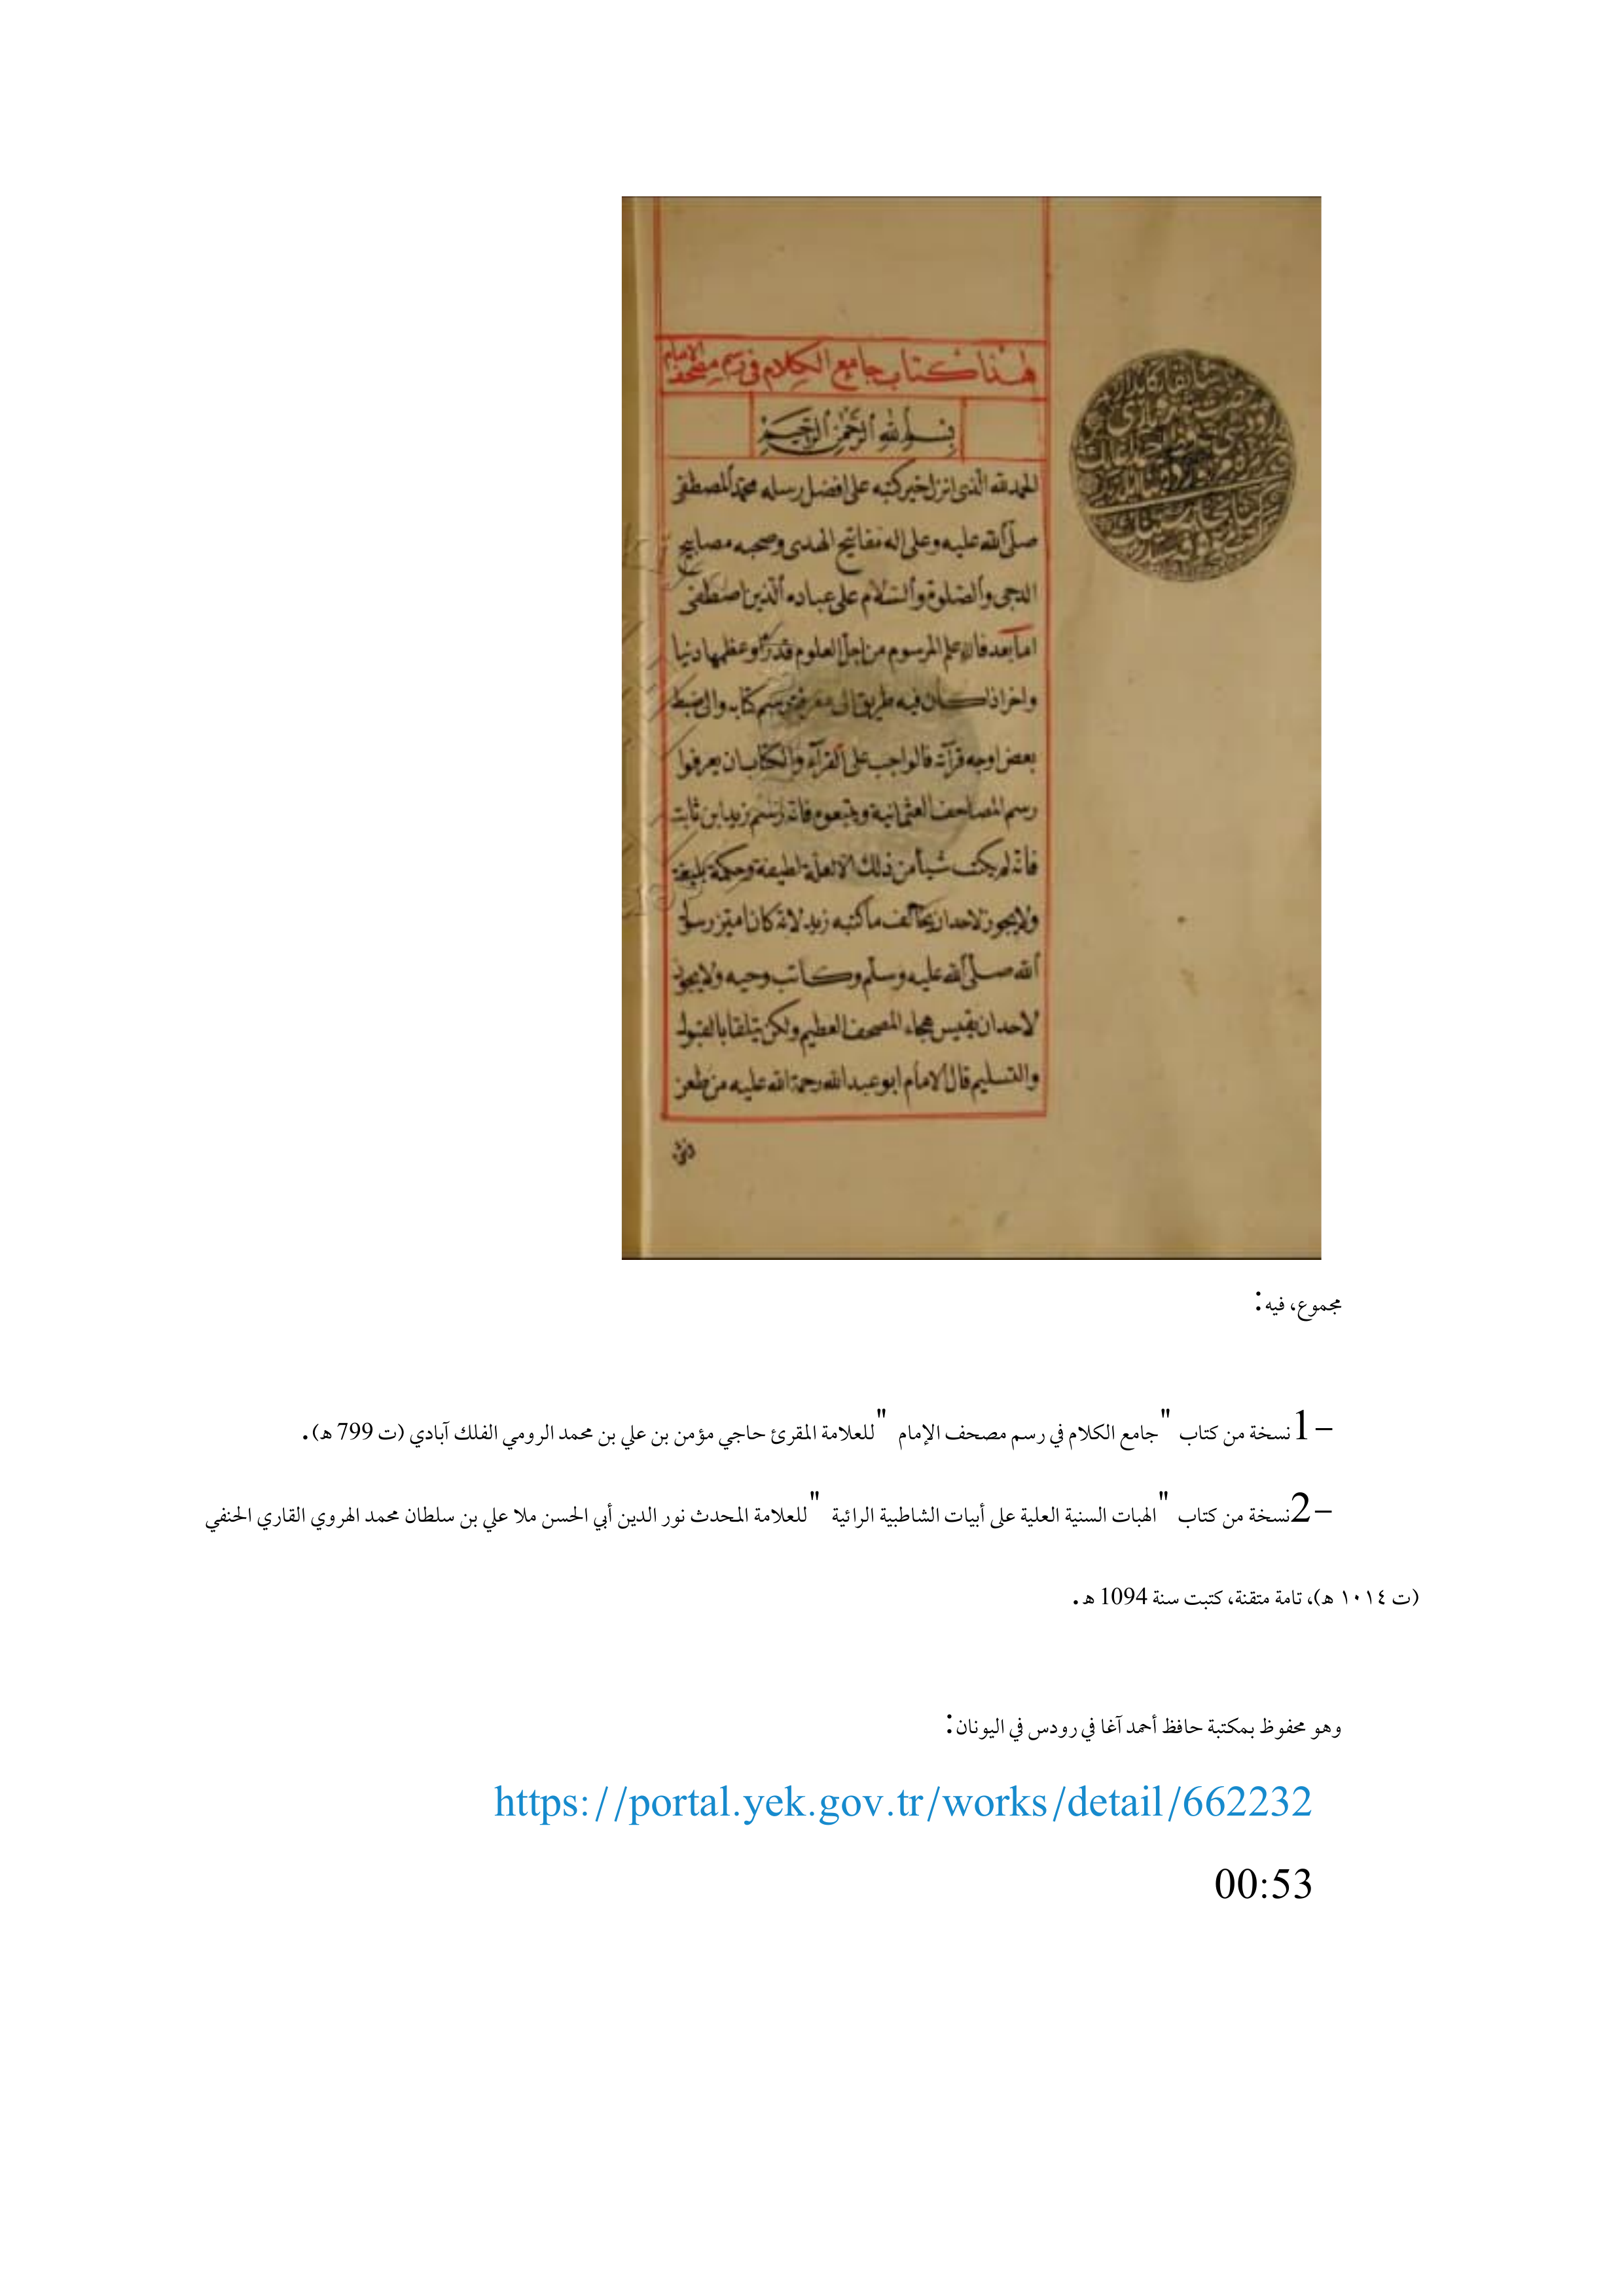 هذا كتاب جامع الكلام فى رسم مصحف الامام
بسم الله الرحمن الرحيم
الحمد لله الذى انزل خير كتبه على افضل رسله محمد المصطفى
صلى الله عليه وعلى اله مفاتيح الهدى وصحبه مصابيح
الدجى والصلوة والسلام على عباده الذين اصطفى
اما بعد فان علم المرسوم من اجل العلوم قدرا وعظمها دنيا
واخرا ذا كان فيه طريق الى معرفة رسم كتابه والى ضبط
بعض اوجه قرآنه فالواجب على القرآء والكتاب ان يعرفوا
رسم المصاحف العثمانية ويتبعوه فانه رسم زيد ابن ثابت
فانه لم يكتب شيأ من ذلك الا لعلة لطيفة وحكمة بليغة
ولا يجوز لاحد ان يخالف ما كتبه زيد لانه كان امين رسول
الله صلى الله عليه وسلم وكاتب وحيه ولا يجوز
لاحد ان يقيس هجاء المصحف العظيم ولكن يتلقا بالقبول
والتسليم قال الامام ابو عبد الله رحمة الله عليه من طعن
مجموع، فيه:
1- نسخة من كتاب "جامع الكلام في رسم مصحف الإمام" للعلامة المقرئ حاجي مؤمن بن علي بن محمد الرومي الفلك آبادي (ت 799 هـ).
2- نسخة من كتاب "الهبات السنية العلية على أبيات الشاطبية الرائية" للعلامة المحدث نور الدين أبي الحسن ملا علي بن سلطان محمد الهروي القاري الحنفي
(ت ١٠١٤ هـ)، تامة متقنة، كتبت سنة 1094 هـ.
وهو محفوظ بمكتبة حافظ أحمد آغا في رودس في اليونان:
https://portal.yek.gov.tr/works/detail/662232
00:53